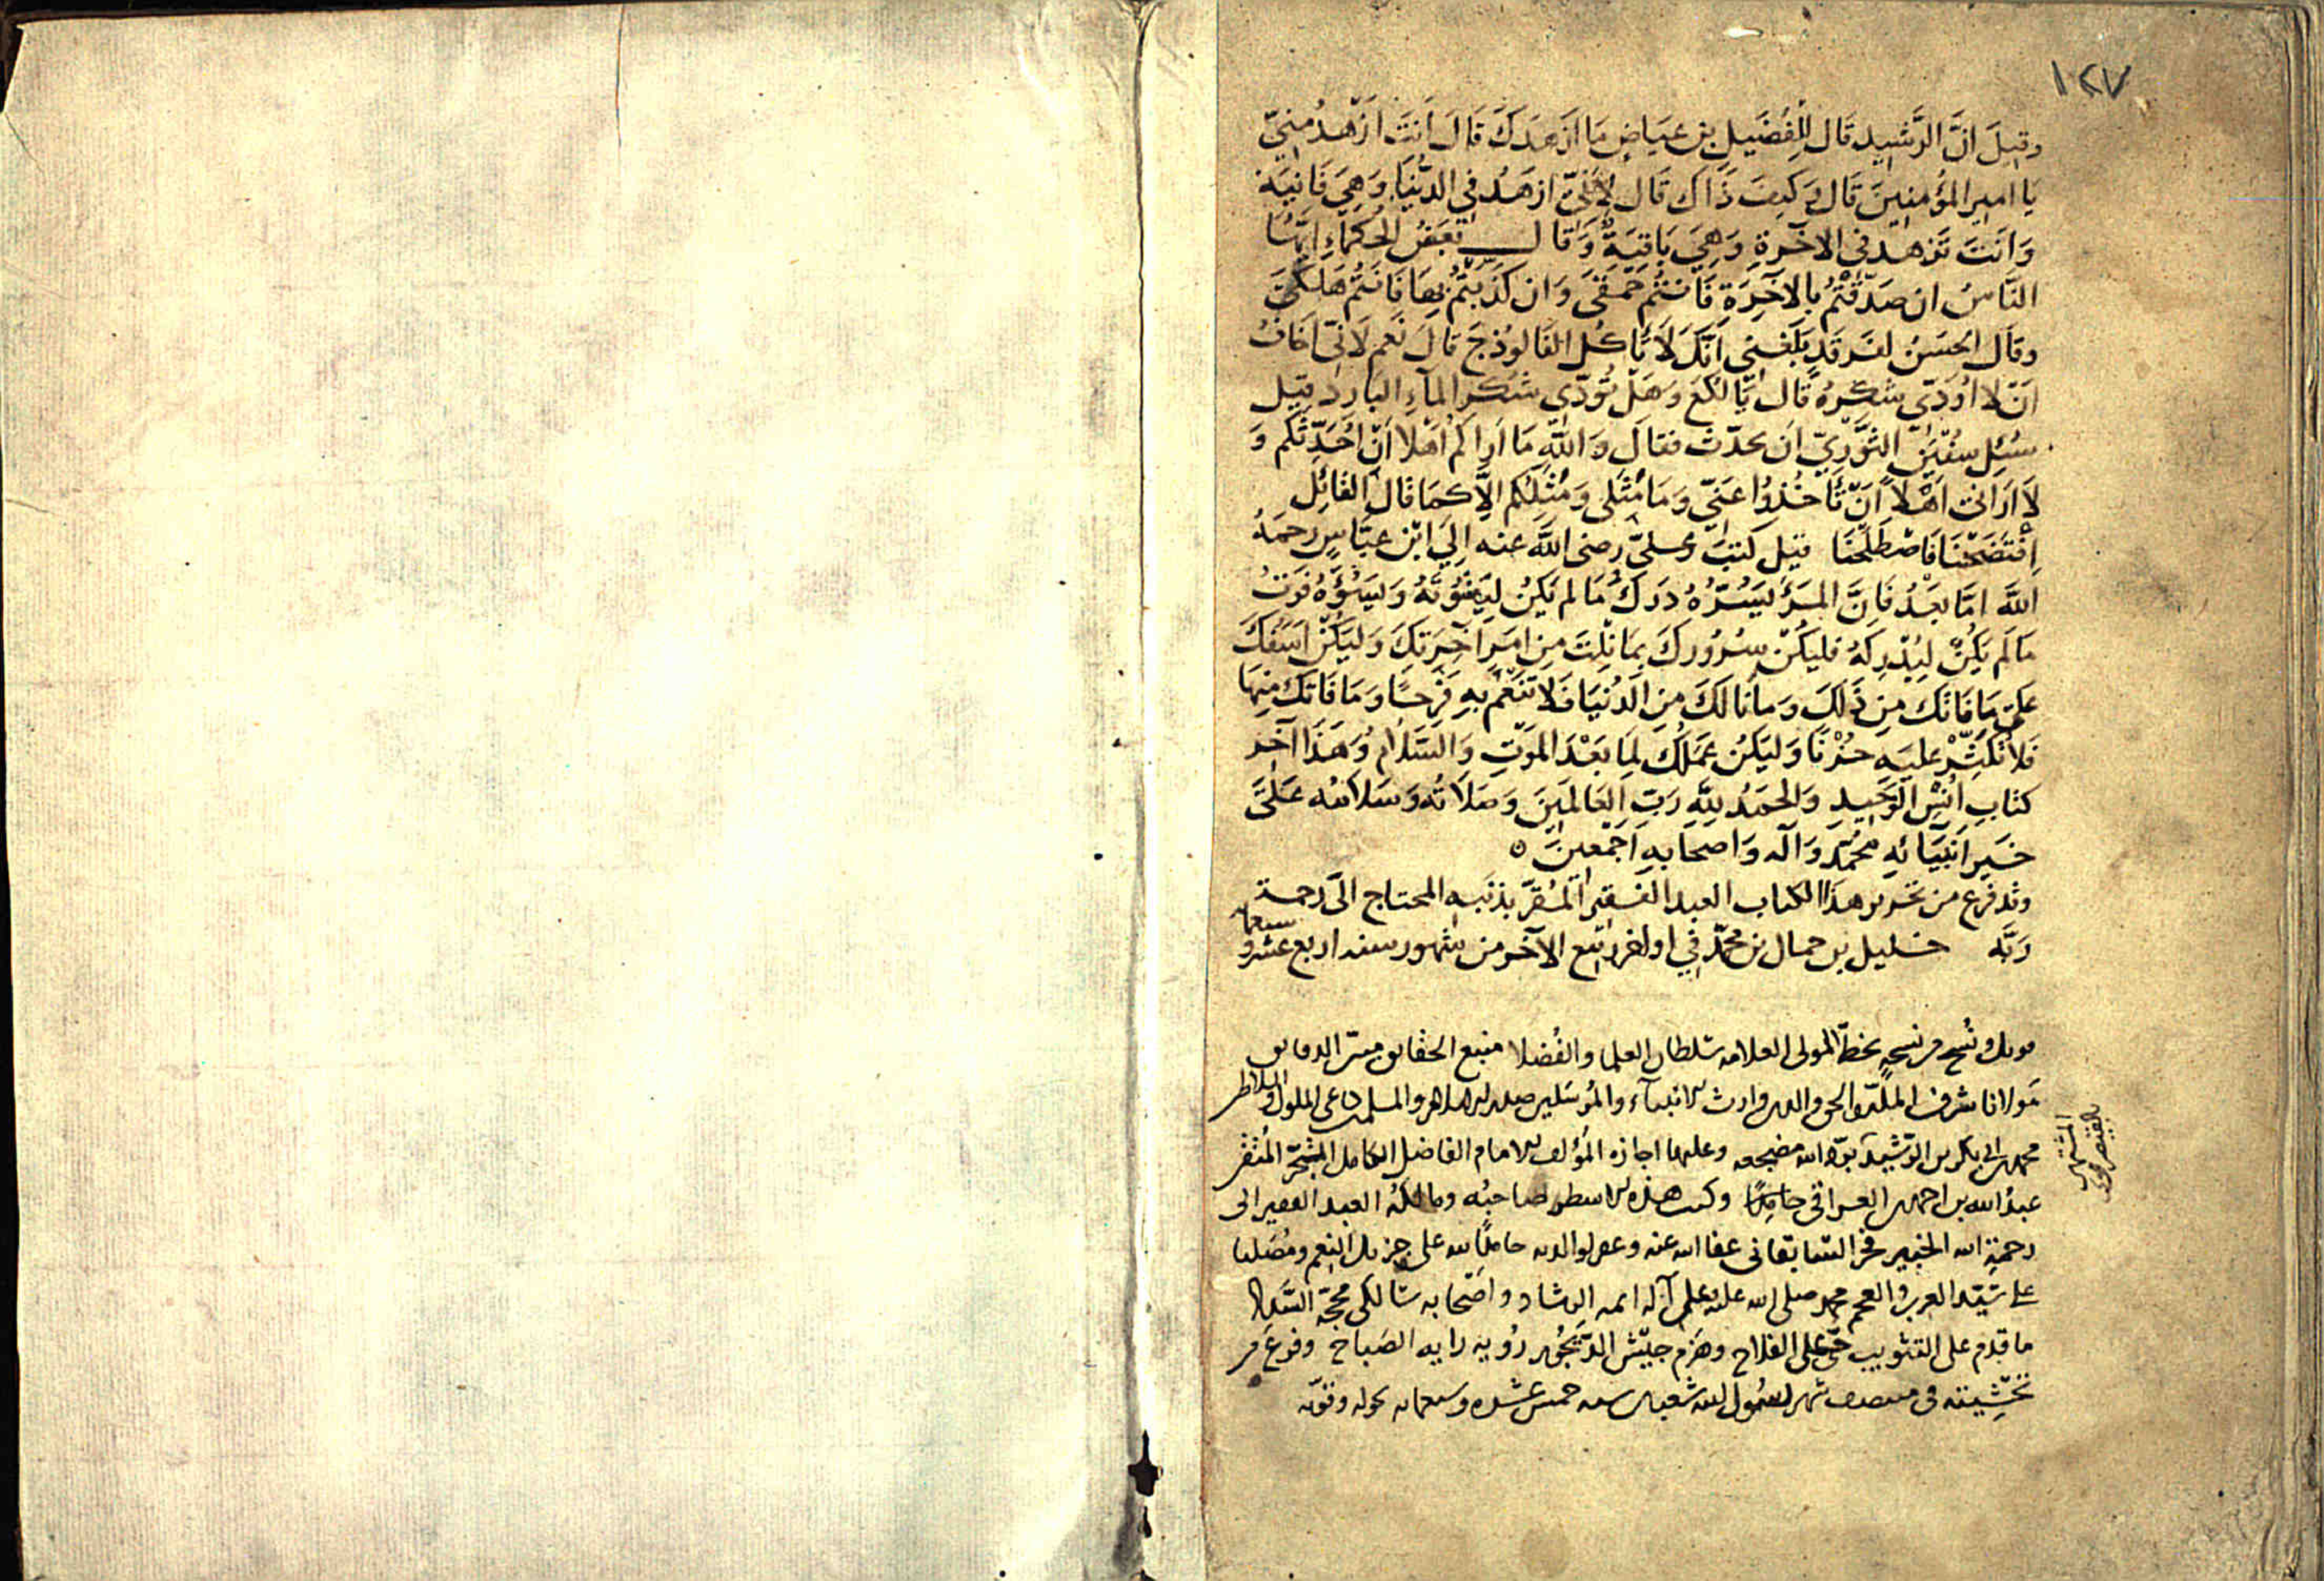 ١٢٧
وقيل انَّ الرَّشيد قال لِلفُضَيل بن عيَاضٍ مَا ازهدَكَ قالَ انتَ ازْهدُ مِنّي
يا امير المؤمنينَ قال وَكيفَ ذَاك قال لاَنّي ازهَدُ في الدُّنيَا وَهِيَ فَانِيَة
وَانتَ تزهدُ في الآخرةِ وَهِيَ بَاقيَةٌ وَقال بَعضُ الحُكمَاءِ ايّهَا
النَّاسُ ان صَدَّقتُمُ بالاخِرَةِ فَانتُم حَمقَى وَان كذَّبتُمُ بِهَا فَانتُم هَلكَى
وقال الحسَنُ لفَرقَدٍ بَلَغَنِي اَنَّكَ لاَ تَاكُل الفَالوُذجَ قالَ نَعم لانّي اخَافُ
اَنْ لا اُؤدّيَ شكرهُ قال يَا لُكَعُ وَهَل تُؤدّى شُكرَ المآءِ البَارد قيل
سُئِل سُفيَن الثَّوْرِيّ اَن يحدّث فقالَ وَاللّهِ مَا اَراكُم اَهْلا اَنْ اُحَدّثَكم وَ
لاَ اَرَانى اَهْلاً اَنْ تَأخُذوُا عَنّي وَمَا مَثَلى وَمَثَلكُم الاَّ كمَا قال القائِل
اِفْتَضَحْنَا فَاصْطَلَحْنَا قيل كَتبَ علىّ رضى اللّه عنه اِلَى ابْن عبَّاسٍ رحمهُ
اللّه امَّا بعْدُ فَاِنَّ المرَءَ ليَسُرُّهُ دَرَكُ مَا لم يَكُنْ ليَفُوتَهُ وَليَسُؤُهُ فوَتُ
مَا لَم يَكُنْ لِيُدْرِكَهُ فليكُنْ سرُورك بمَا نِلتَ مِن امرِ آخِرَتِكَ وَليَكُنْ اسَفكَ
عَلى مَا فَاتكَ مِن ذَلكَ وَما نَالكَ مِنَ الدُنيَا فَلا تَنعَمْ بهِ فرَحًا وَمَا فَاتك مِنهَا
فَلا تُكثِّرْ عليَهِ حُزْنًا وَليَكُن عَمَلُكَ لِمَا بَعْدَ المَوتِ وَالسَّلَامُ وَهَذا آخر
كتابِ اُنْسِ الوَحيدِ وَالحمَدُ للّهِ رَبّ العَالَمينَ وَصلاَتُه وَسَلامُه عَلَى
خَيرِ اَنبيَائهِ مُحمّد وَآله وَاصحَابهِ اَجْمَعينَ ٥
وقد فرغ من تحرير هذا الكتاب العبد الفقير المُقرّ بذنبه المحتاج الى رحمة
رَبّه خليل بن جمال بن محمّد في اواخر ربيع الآخر من شهور سنه اربع عشر و
سبعمايه
قوبل ونُسخ من نسخةٍ بخطّ المولى العلامه سُلطان العلما والفُضلا منبع الحقايق مبيّن الدقايق
مَولانا شرف الملّة والحق والدين وارث الانبياء والمُرسَلين الاسلام والمسلمين الملوك والسلاطين
محمد بن ابى بكر بن الرّشيد بَوّأ الله مضجعه وعليها اجازه المُؤلف الامام الفاضل الكامل المتبحّر
المشتهر
عبدُ الله بن احمد العراقى حامِدًا وكتب هذه الاسطر صاحبُه ومالكُهُ العبد الفقير الى
رحمة الله الخبير فخر السّابقانى عفا الله عنه وغفر لوالديه حامدًا لله على جزيل النِعم ومُصَليا
على سَيّد العرب والعجم محمد صلى الله عليه وعلى آله ايمه الرشاد واصحابه سَالكى محجّه السَّداد
ما قدّم على التثويب حىّ على الفلاح وهَزم جيشَ الدَّيجُور رُويه رايه الصَباح وفرغ من
تحشِيَته فى منتصف شهر رسُول الله شعبان سنه خمس عشره وسبعمايه بحوله وقوّته